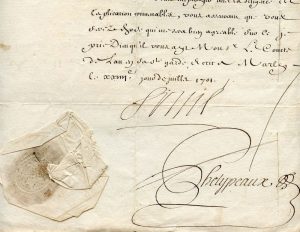 l'aplication convenable, vous assurant que vous
ferez chose qui me sera bien agreable. Sur ce je
prie Dieu qu'il vous ayt Mons.r le Comte
de en sa s.te garde. Ecrit a Marly
le xxiii.e jour de juillet 1701.
Louis
Phelypeaux